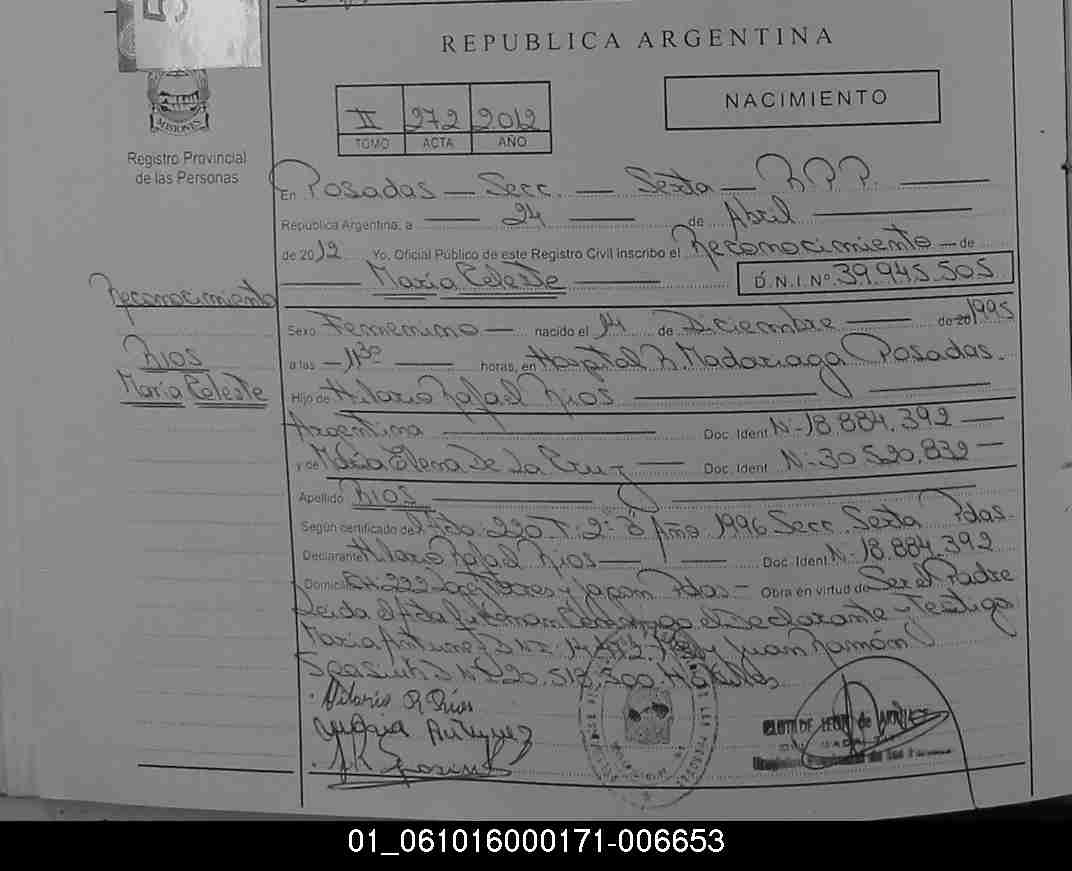 REPUBLICA ARGENTINA
II 272 2012
TOMO ACTA AÑO
NACIMIENTO
MISIONES
Registro Provincial
de las Personas
En Posadas — Secc. — Sexta — R.P.P.
República Argentina, a 24 de Abril
de 2012 Yo, Oficial Público de este Registro Civil inscribo el Reconocimiento — de
María Celeste D.N.I.Nº 39.945.505
Reconocimiento
RIOS
María Celeste
Sexo Femenino — nacido el 14 de Diciembre — de 20 1995
a las — 11 30 — horas, en Hospital R. Madariaga Posadas.
Hijo de Hilario Rafael Rios
Argentina Doc. Ident. Nº 18.884.392 —
y de María Elena De La Cruz — Doc. Ident. Nº 30.520.832 —
Apellido RIOS
Según certificado de Acta 220 Tº 2º Año 1996 Secc. Sexta Pdas.
Declarante Hilario Rafael Rios — Doc. Ident. Nº 18.884.392
Domicilio 222 y Japón Pdas — Obra en virtud de Ser el Padre
Leida el Acta la firman Conmigo el Declarante y Testigo
María Antunez D.N.I. y Juan Ramón
D.N.I. 20.518.500
Hilario R Ríos
María Antunez
01_061016000171-006653